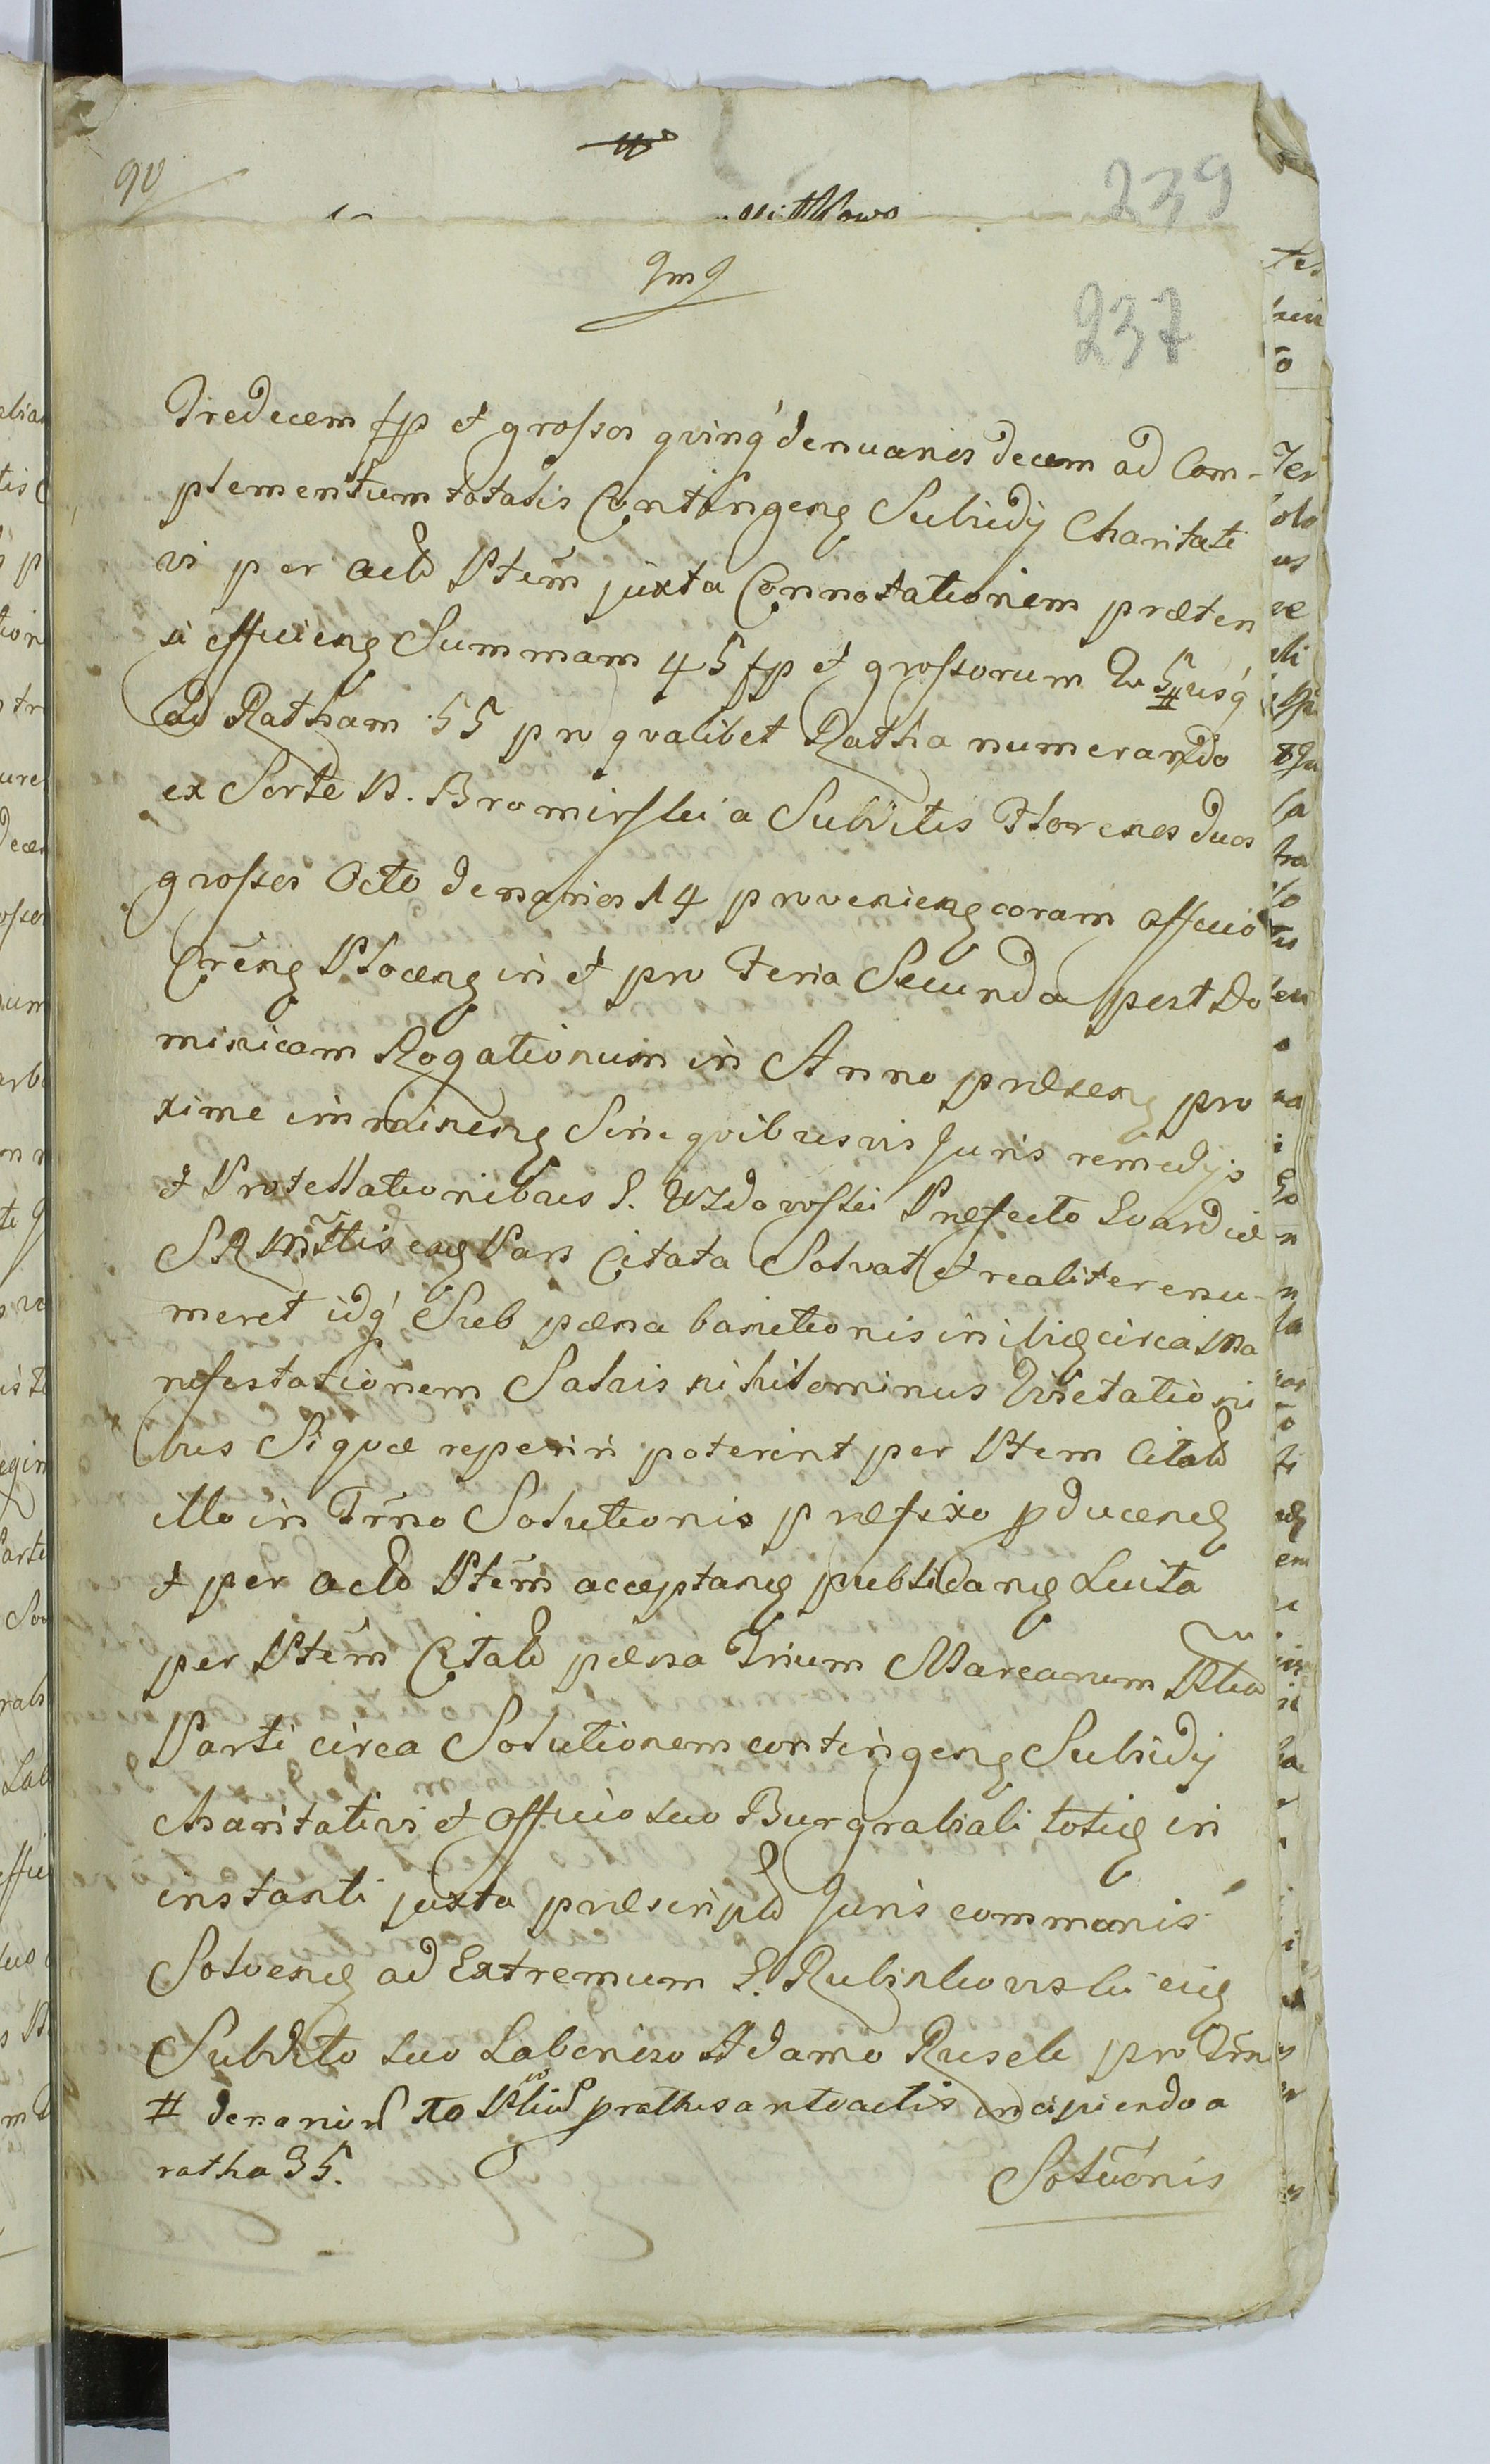 90
239
237
Tredecem fp et grossos qvinq' denuarios decem ad Com-
plementum totalis Contingeng Subsidij Charitati
vi per acto Ptem juxta Connotationem præten
si efficieng Summam 45 fp et grossorum 20 5 # usq'
ad Ratham 55 pro qvalibet Ratha numerando
ex Sorte P. Bromirski a Subditis Florenos duos
grossos Octo denarios 14 provenieng coram officio
Creng Ploceng in et pro Feria Secunda post Do
minicam Rogationum in Anno præseng pro
xime immineng Sine qvibusvis Juris remedijs
et Protestationibus G. Uzdowski Præfecto Gvardiæ
SRMttis eng Pars Citata Solvat et realiter enu-
meret idq' Sub pæna banitionis in ibig circa Ma
nifestationem Salvis nihilominus Qvietationi
bus Si quæ reperiri poterint per Ptem Citato
illo in Trno Solutionis præfixo pduceng
et per acto Ptem acceptang publidang Luita
per Ptem Citato pæna Trium Marcarum
Parti circa Solutionem contingeng Subsidij
charitativi et Officio suo Burgrabiali totig in
instanti juxta præscripto Juris communis
Solveng ad Extremum G. Rubinkowski eig
Subdito suo Laborioso Adamo Rusek pro Trn
# denarior 10 rathis antvactis incipiendo a
ratha 35.
Solvonis